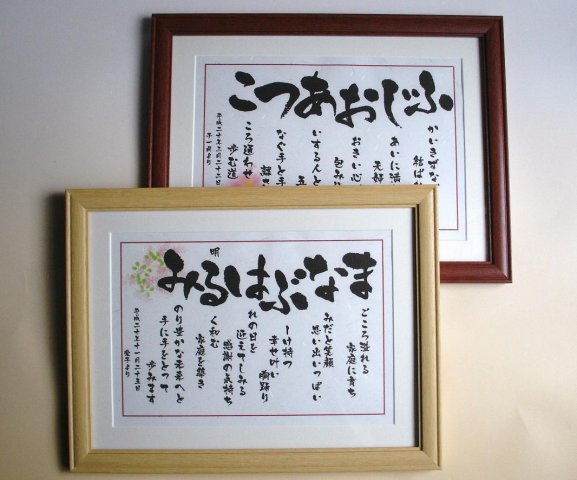 ふじおあつこ
かいきずな
結ばれ
あいに満
おおきい心
包み
いする人と
なぐ手と手
離さ
ころ通わせ
歩む道
平成二十年三月二十二日
まなぶはるみ
ごころ溢れる
家庭に育ち
みだと笑顔
思い出いっぱい
ーけ持つ
幸せ叶い
胸踊り
れの日を
迎えてしみる
感謝の気持ち
明
く和む
家庭を築き
のり豊かな未来へと
手に手をとって
歩みます
平成二十年十一月二十五日
愛子より